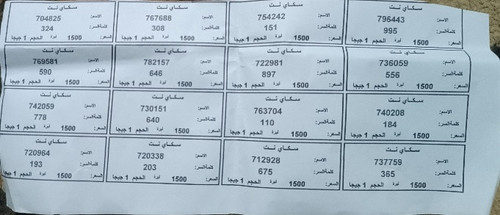 سكاي نت
الاسم: 796443
كلمةالسر: 995
السعر: 1500 ليرة الحجم 1 جيجا
سكاي نت
الاسم: 754242
كلمةالسر: 151
السعر: 1500 ليرة الحجم 1 جيجا
سكاي نت
الاسم: 767688
كلمةالسر: 308
السعر: 1500 ليرة الحجم 1 جيجا
سكاي نت
الاسم: 704825
كلمةالسر: 324
السعر: 1500 ليرة الحجم 1 جيجا
سكاي نت
الاسم: 736059
كلمةالسر: 556
السعر: 1500 ليرة الحجم 1 جيجا
سكاي نت
الاسم: 722981
كلمةالسر: 897
السعر: 1500 ليرة الحجم 1 جيجا
سكاي نت
الاسم: 782157
كلمةالسر: 646
السعر: 1500 ليرة الحجم 1 جيجا
سكاي نت
الاسم: 769581
كلمةالسر: 590
السعر: 1500 ليرة الحجم 1 جيجا
سكاي نت
الاسم: 740208
كلمةالسر: 184
السعر: 1500 ليرة الحجم 1 جيجا
سكاي نت
الاسم: 763704
كلمةالسر: 110
السعر: 1500 ليرة الحجم 1 جيجا
سكاي نت
الاسم: 730151
كلمةالسر: 640
السعر: 1500 ليرة الحجم 1 جيجا
سكاي نت
الاسم: 742059
كلمةالسر: 778
السعر: 1500 ليرة الحجم 1 جيجا
سكاي نت
الاسم: 737759
كلمةالسر: 365
السعر: 1500 ليرة الحجم 1 جيجا
سكاي نت
الاسم: 712928
كلمةالسر: 675
السعر: 1500 ليرة الحجم 1 جيجا
سكاي نت
الاسم: 720338
كلمةالسر: 203
السعر: 1500 ليرة الحجم 1 جيجا
سكاي نت
الاسم: 720964
كلمةالسر: 193
السعر: 1500 ليرة الحجم 1 جيجا